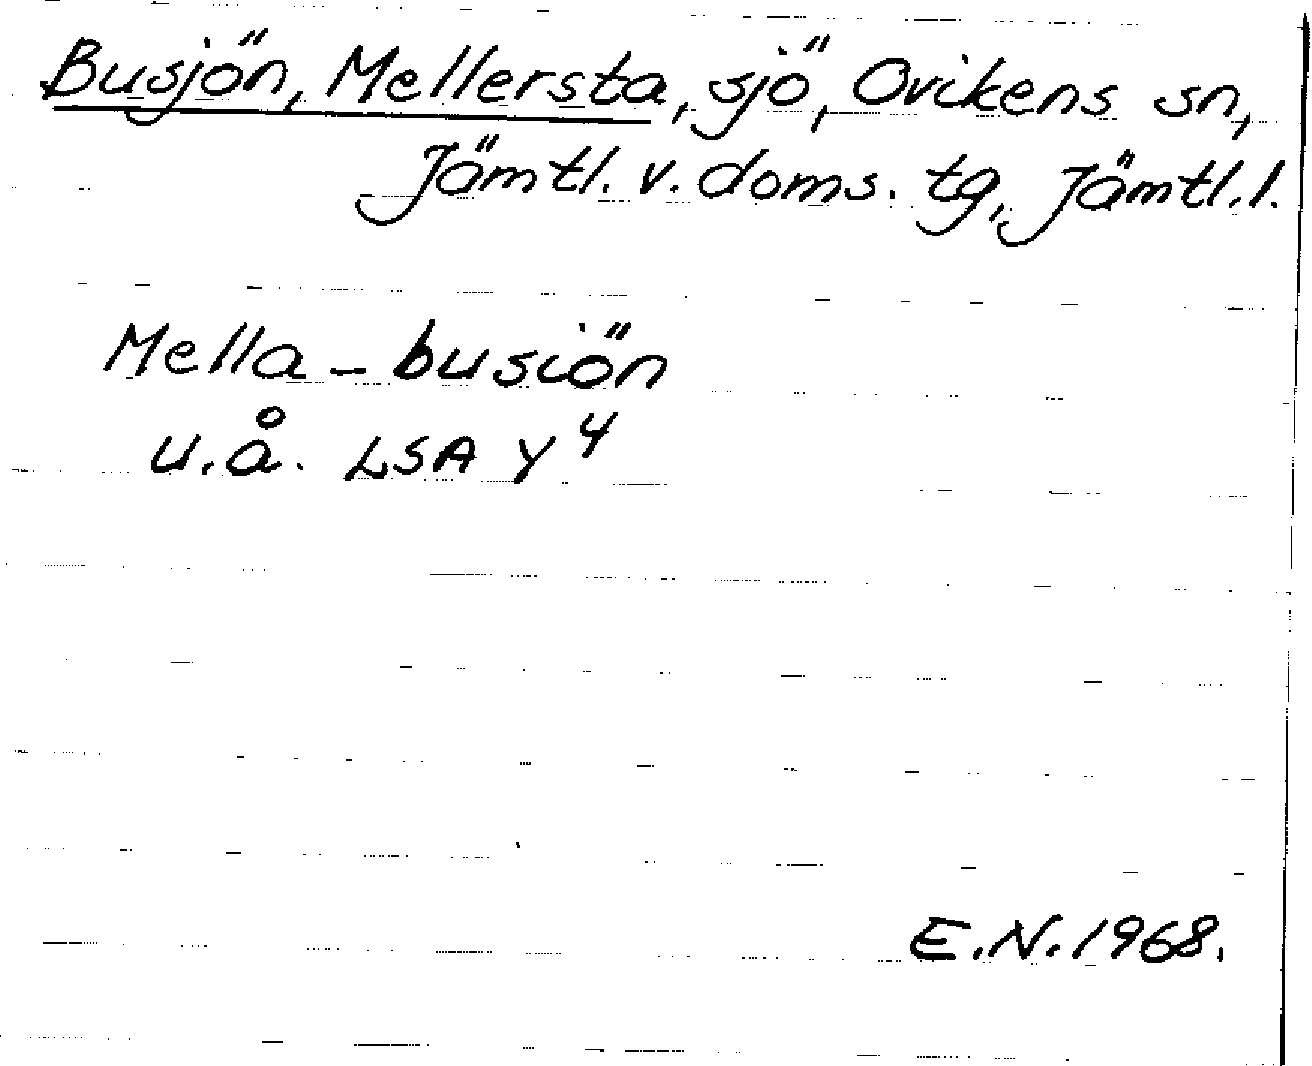 Busjön, Mellersta, sjö, Ovikens sn,
Jämtl. v. doms. tg, Jämtl. l.
Mella-busiön
u.å. LSA Y 4
E.N. 1968.